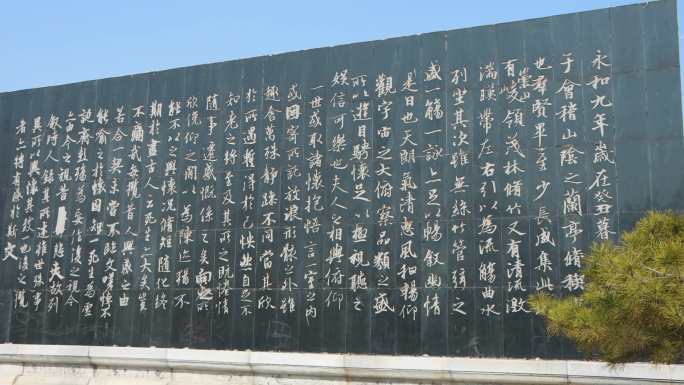 永和九年歲在癸丑暮
于會稽山陰之蘭亭脩禊
也羣賢畢至少長咸集此地
有崇山峻領茂林脩竹又有清流激
湍暎帶左右引以為流觴曲水
列坐其次雖無絲竹管弦之
盛一觴一詠亦足以暢敘幽情
是日也天朗氣清惠風和暢仰
觀宇宙之大俯察品類之盛
所以遊目騁懷足以極視聽之
娛信可樂也夫人之相與俯仰
一世或取諸懷抱悟言一室之內
或因寄所託放浪形骸之外雖
趣舍萬殊靜躁不同當其欣
於所遇蹔得於己怏然自足不
知老之將至及其所之既惓情
隨事遷感慨係之矣向之所
欣俛仰之閒以為陳迹猶不
能不以之興懷況脩短隨化終
期於盡古人云死生亦大矣豈
不痛哉每攬昔人興感之由
若合一契未嘗不臨文嗟悼不
能喻之於懷固知一死生為虛
誕齊彭殤為妄作後之視今
亦由今之視昔悲夫故列
敘時人錄其所述雖世殊事
異所以興懷其致一也後之攬
者亦將有感於斯文